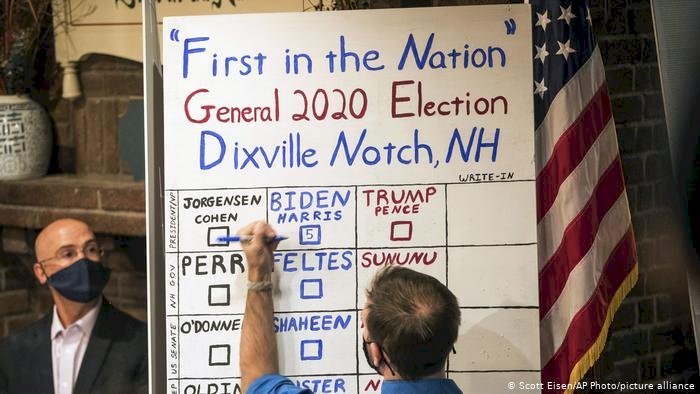 "First in the Nation"
General 2020 Election
Dixville Notch, NH
WRITE-IN
PRESIDENT/VP
JORGENSEN
COHEN
BIDEN
HARRIS
5
TRUMP
PENCE
NH GOV
PERR
FELTES
SUNUNU
US SENATE
O'DONNE
SHAHEEN
OLDIN
© Scott Eisen/AP Photo/picture alliance